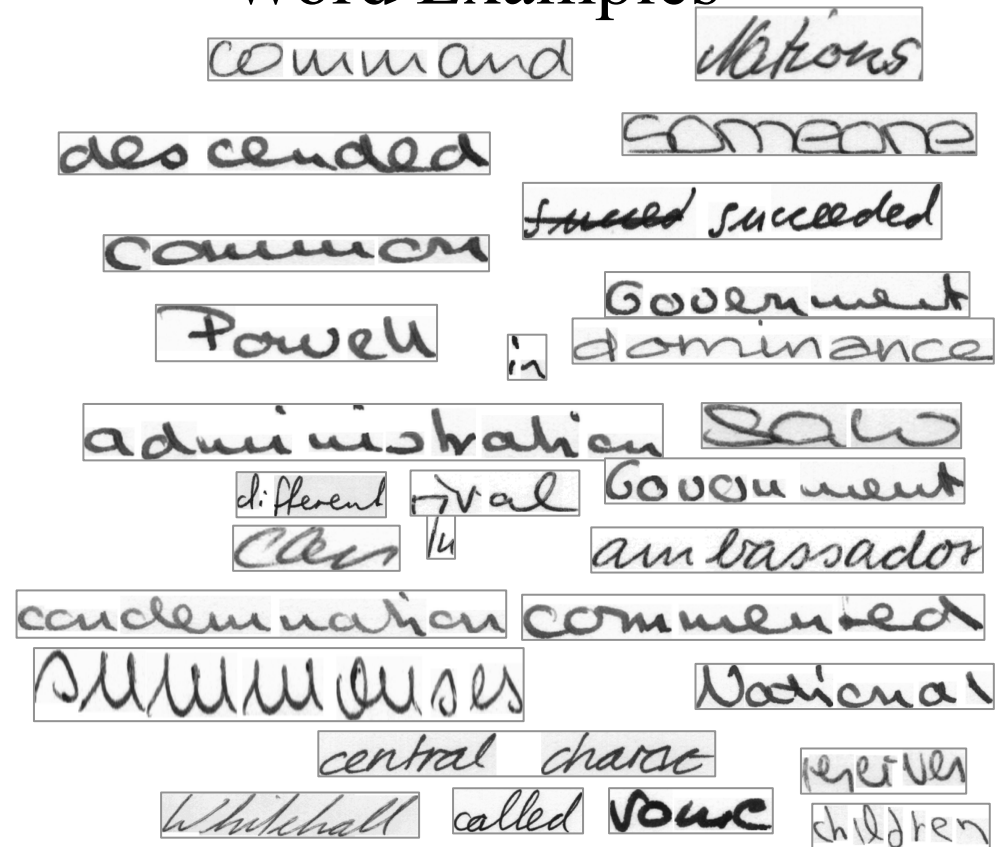 Word Examples
command Nations
descended someone
succeed succeeded
common
Government
Powell in dominance
administration saw
different rival Government
can In ambassador
condemnation commented
summonses National
central charac
receiver
Whitehall called some
children